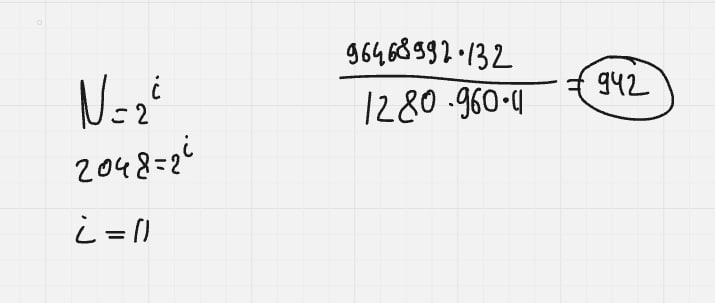 N=2^i
2048=2^i
i=11
96468992·132
1280·960·11
=942